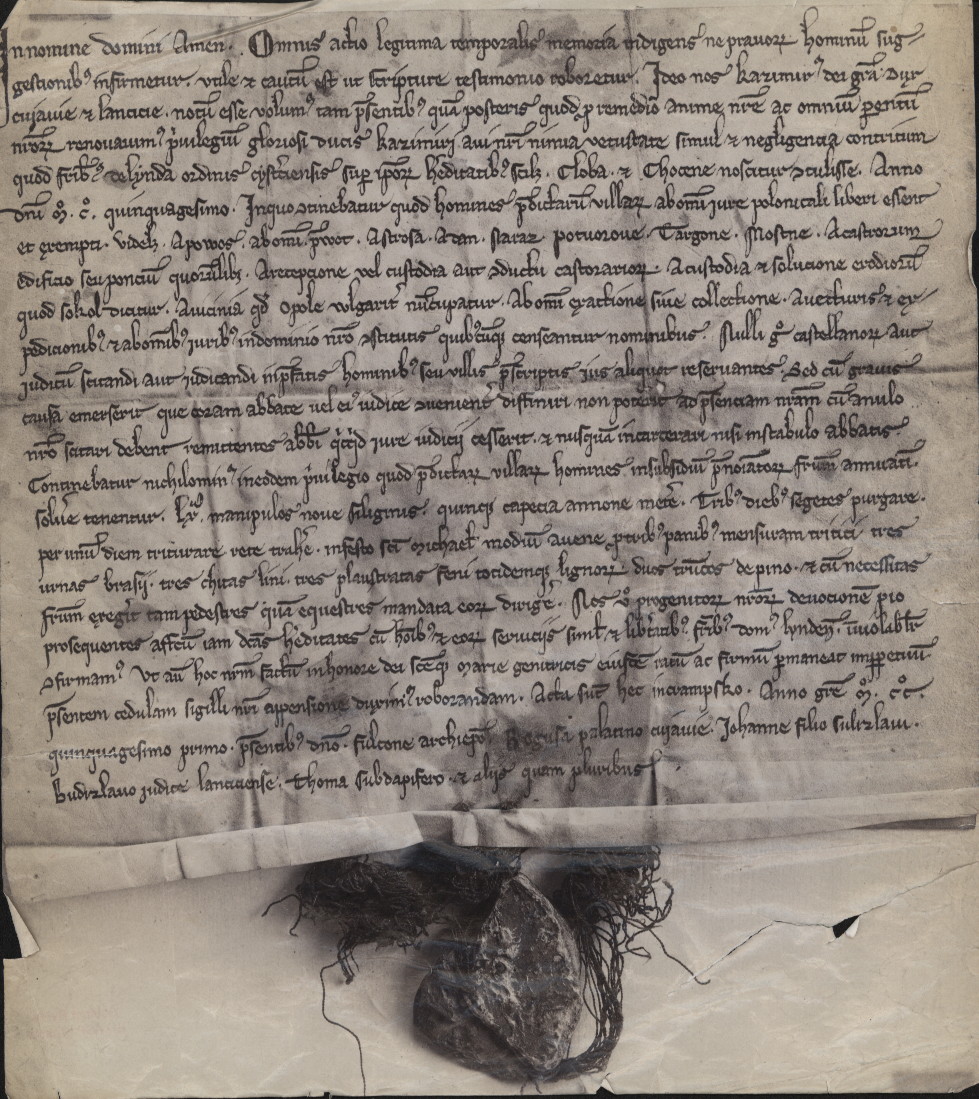 In nomine domini Amen. Omnis actio legitima temporalis memoria indigens ne pravoꝝ hominū sug-
gestionibꝰ infirmetur. vtile ⁊ cautū est ut scripture testimonio roboretur. Ideo nos kazimirꝰ dei grā Dux
cujavie ⁊ lancicie. notū esse volumꝰ tam p̄sentibꝰ quā posteris quod ꝓ remedio anime nrē ac omniū parentū
nrōꝝ renovavimꝰ privilegiū gloriosi ducis kazimiri avi nrī nimia vetustate simul ⁊ negligencia contritum
quod frībꝰ de lynda ordinis cysterciensis super ipsoꝝ hēditatibꝰ scilz. Cloba. ⁊ Chocene noscitur ↄtulisse. Anno
dnī .ꝏ. c̊. quinquagesimo. In quo ↄtinebatur quod homines p̄dictarū villaꝝ ab omī iure polonicali liberi essent
et exempti. videlz. A powos. ab omī. p̄wot. A strosa. A stan. Naraz. potvorove. Targone. Mostne. A castrorum
edificio seu ponciū quorūlibꝫ. A recepcione vel custodia aut ↄductu castorarioꝝ. A custodia ⁊ solucione erodiorū
quod sokol dicitur. A vicinia qd̄ opole vulgarit̓ nūcupatur. Ab omī exactione sive collectione. A vecturis ⁊ ex-
pedicionibꝰ. ⁊ ab omībꝰ iuribꝰ in dominio nrō ↄstitutis quibꝰcūqꝫ censeantur nominibus. Nulli gͦ castellanoꝝ aut
iudicū scitandi aut iudicandi in p̄fatis hominibꝰ seu villis p̄scriptis ius aliquot reservantes. Sed cū gravis
causa emerserit que coram abbate vel eiꝰ iudice ↄvenient̓ diffiniri non poterit ad p̄senciam nrām cū anulo
nrō scitari debent remittentes abbī quicqd̄ iure iudicij cesserit. ⁊ nusquā incarcerari nisi in stabulo abbatis.
Continebatur nichilominꝰ in eodem privilegio quod p̄dictaꝝ villaꝝ homines in subsidiū p̄noīatoꝝ frūm annuatī.
solvere tenentur. lx. manipulos nove siliginis. quinqꝫ capecia annone metere. Tribꝰ diebꝰ segetes purgare.
per unū diem triturare rete trahere. in festo scī Michael modiū avene. ꝓ tribꝰ panibꝰ mensuram tritici tres
urnas brasij. tres chitas lini. tres plaustratas feni totidemqꝫ lignoꝝ duos trūcos de pino. ⁊ cū necessitas
frūm exegit tam pedestres quā equestres mandata eoꝝ dirigere. Nos v̊ progenitoꝝ nrōꝝ devocionē pio
prosequentes affectū iam dcās hēditates cū hoībꝰ ⁊ eoꝝ servicijs simul ⁊ libertatibꝰ. frībꝰ domꝰ lynden̄. inviolabilit̓
ↄfirmamꝰ. Ut aū hoc nrūm factū in honore dei scēqꝫ Marie genitricis eiusdē ratū ac firmū permaneat in p̄petuū
p̄sentem cedulam sigilli nrī appensione duximꝰ roborandam. Acta sūt hec in crampsko. Anno grē .ꝏ. c̊c̊.
quinquagesimo primo. p̄sentibꝰ dnō. fulcone archiepō. Bogusa palatino cujavie. Johanne filio sulizlavi.
budizlavo judice lanciciense. Thoma subdapifero. ⁊ alijs quam pluribus